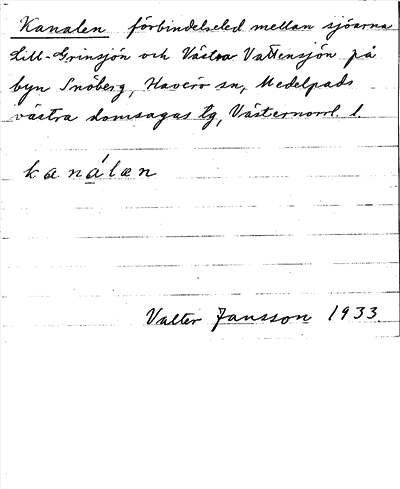 Kanalen förbindelseled mellan sjöarna
Lill-Grinsjön och Västra Vattensjön på
byn Snöberg, Haverö sn, Medelpads
västra domsagas tg, Västernorrl. l.
kanálæn
Valter Jansson 1933.